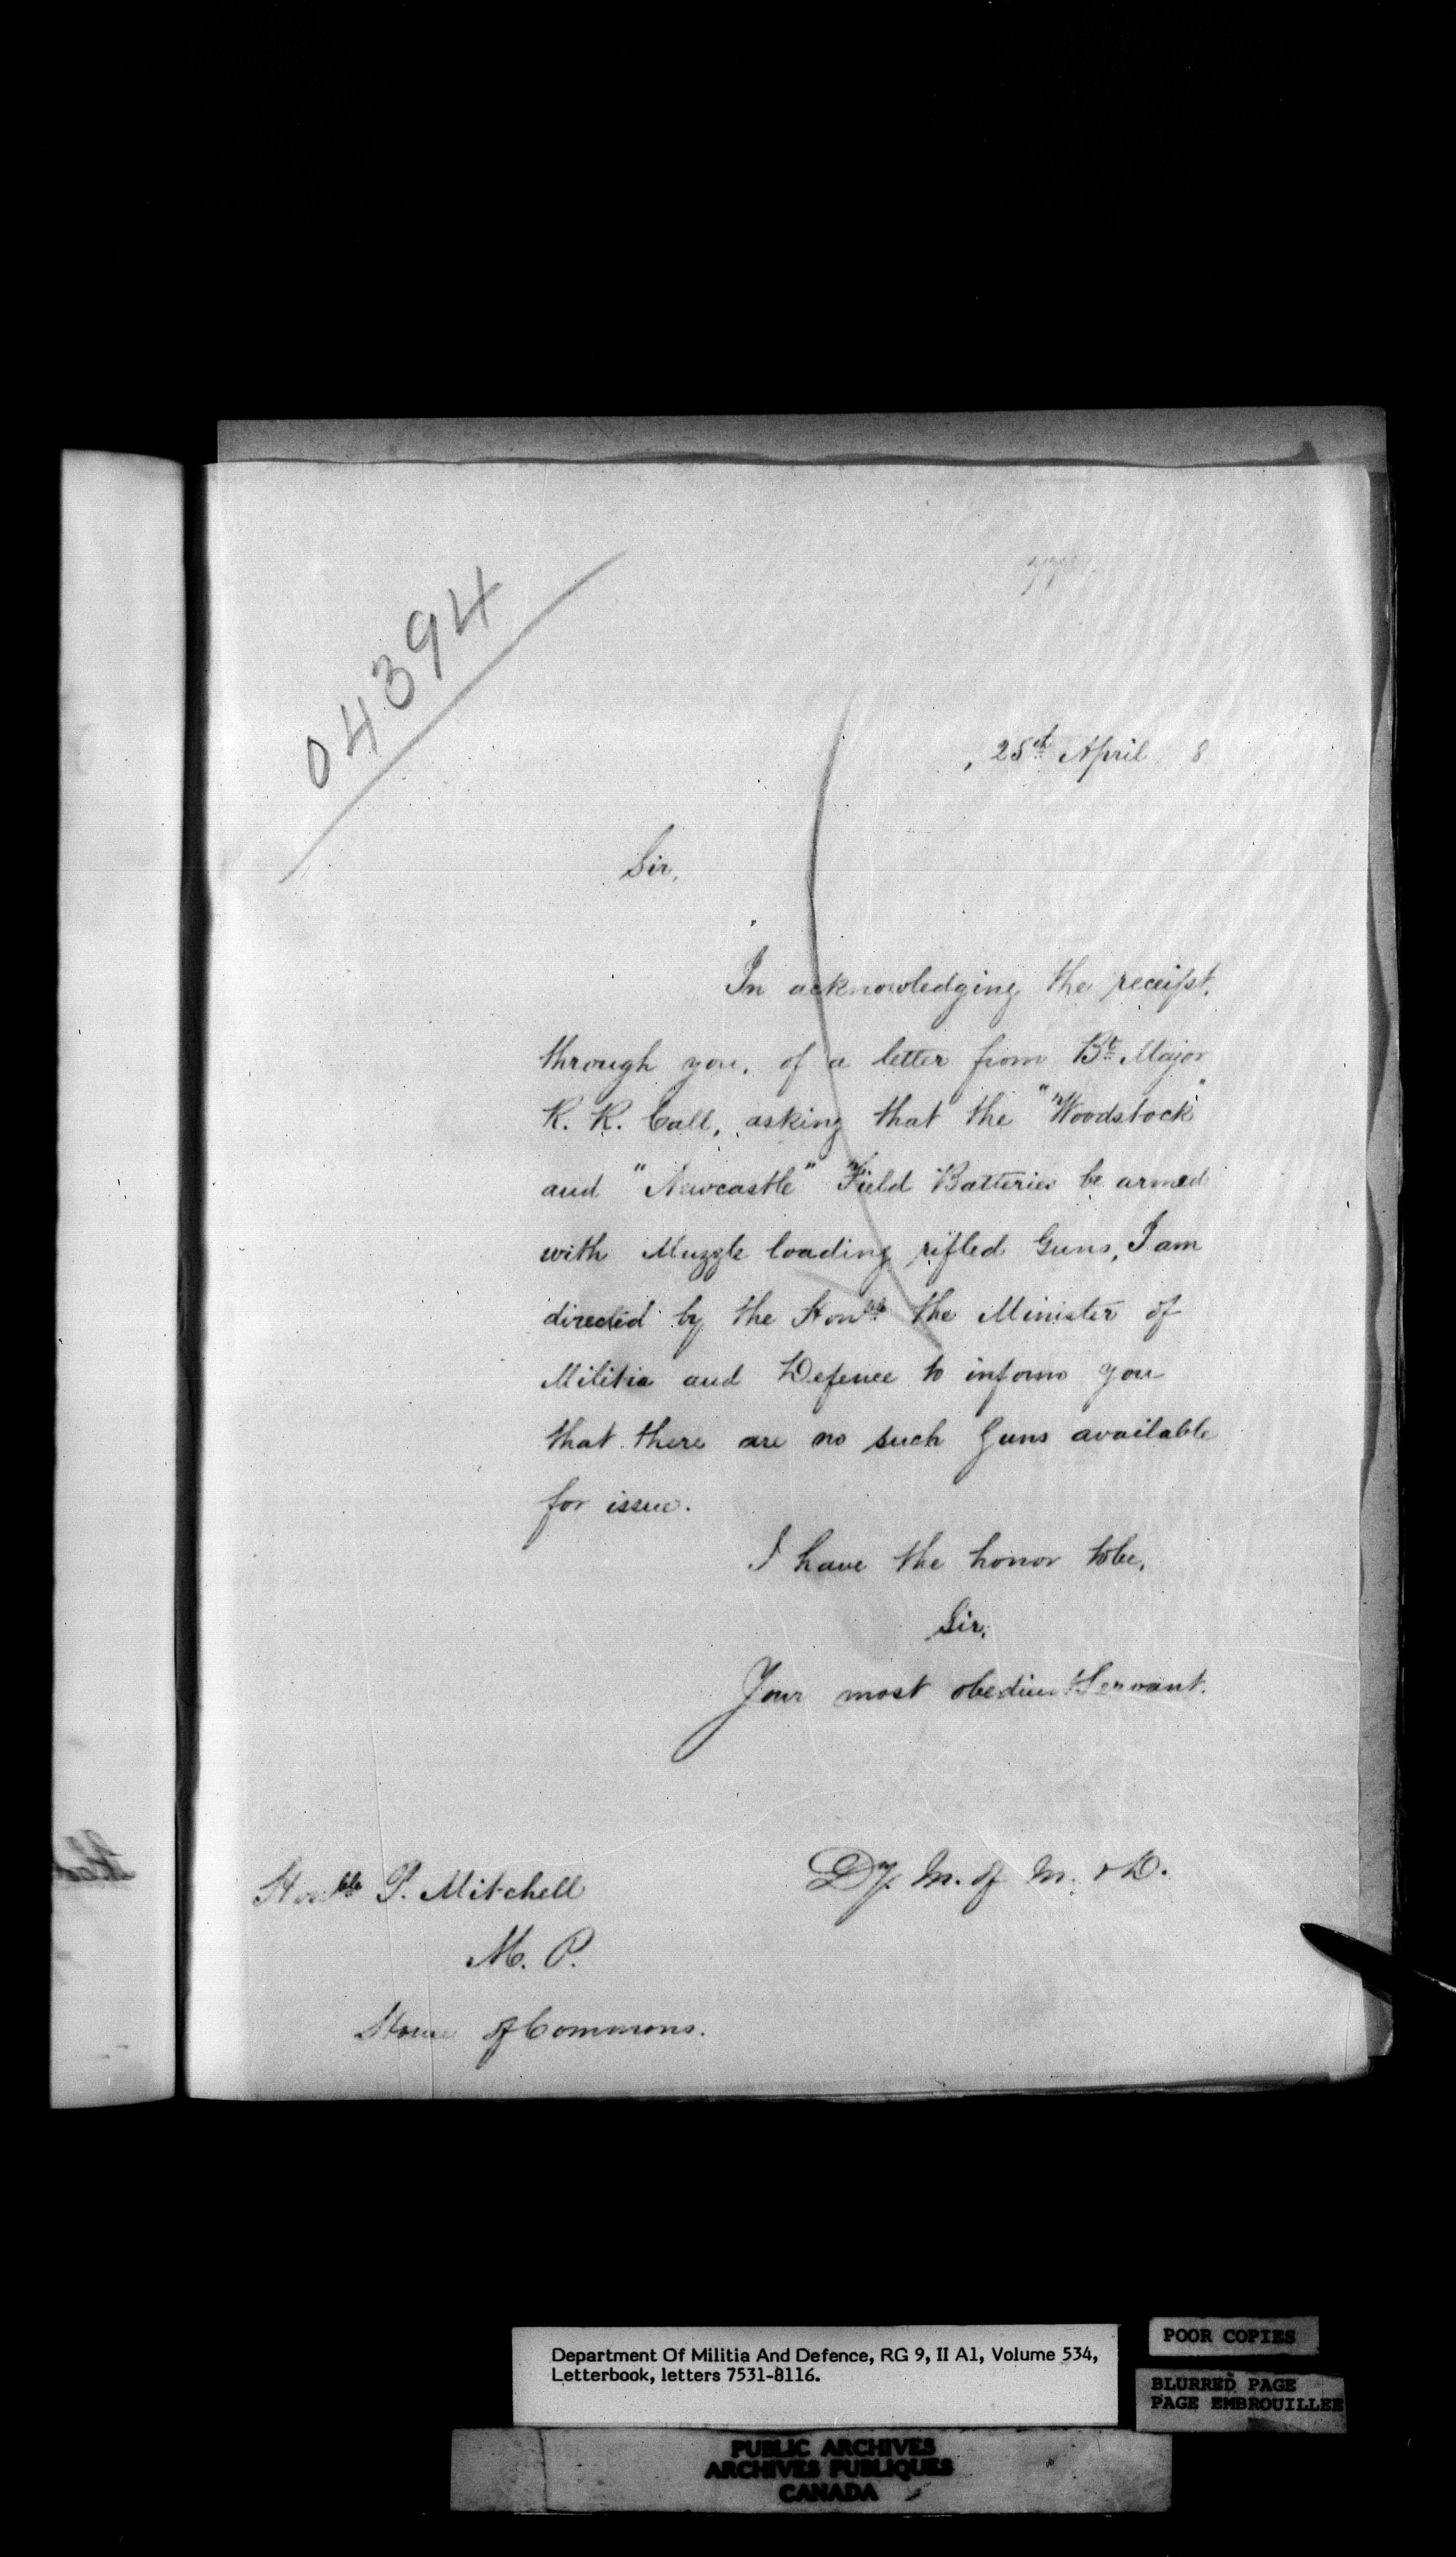 04394
, 25th April 8
Sir,
In acknowledging the receipt,
through you, of a letter from Bt. Major
R. R. Call, asking that the "Woodstock"
and "Newcastle" Field Batteries be armed
with Muzzle loading rifled Guns, I am
directed by the Honble the Minister of
Militia and Defence to inform you
that there are no such Guns available
for issue.
I have the honor to be,
Sir,
Your most obedient Servant.
Dy. M. of M. & D.
Honble P. Mitchell
M. P.
House of Commons.
Department Of Militia And Defence, RG 9, II A1, Volume 534,
Letterbook, letters 7531-8116.
POOR COPIES
BLURRED PAGE
PAGE EMBROUILLEE
PUBLIC ARCHIVES
ARCHIVES PUBLIQUES
CANADA